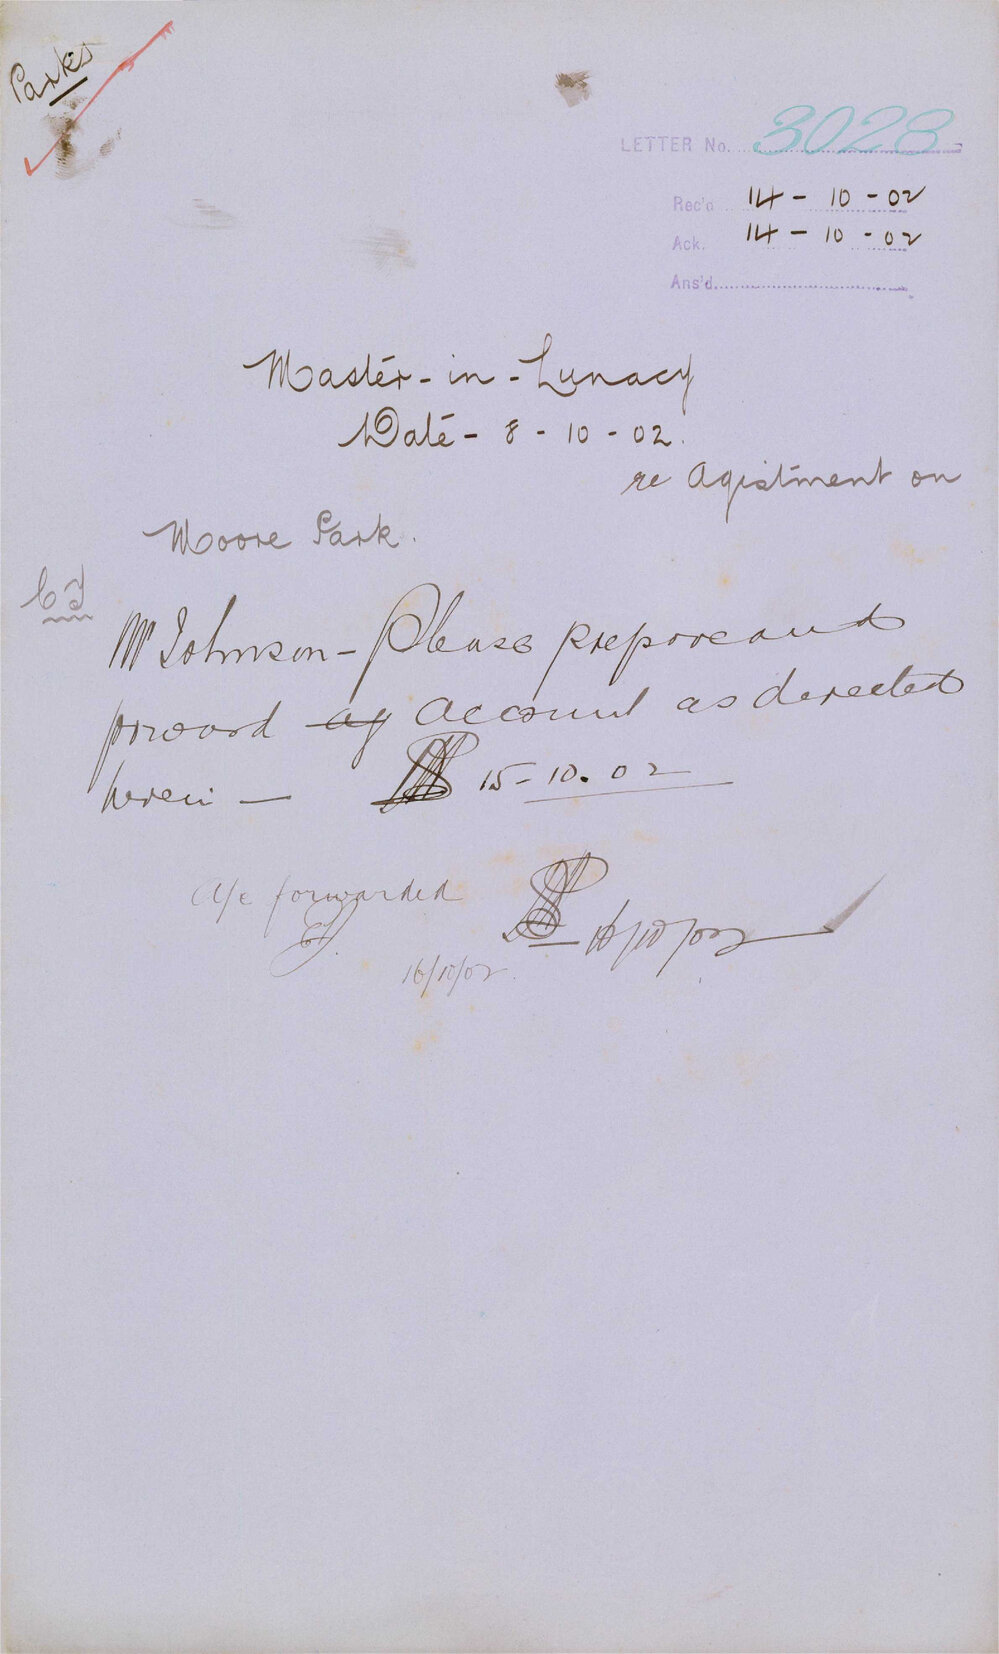 Parks
LETTER No. 3028
Rec'd 14-10-02
Ack. 14-10-02
Ans'd.
Master-in-Lunacy
Date- 8-10-02.
re Agistment on
Moore Park.
Mr Johnson- Please prepare and
forward ay account as directed
herein —
15-10.02
A/c forwarded
16/10/02
16/10/02.